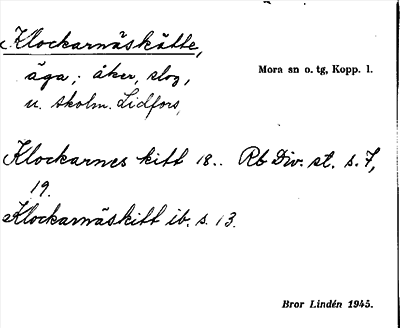 Klockarnäskätte,
äga; åker, slog,
u. skolm. Lidfors,
Mora sn o. tg, Kopp. l.
Klockarnes kitt 18.. Rb Div. st. s. 7,
19.
Klockarnäskitt ib. s. 13.
Bror Lindén 1945.